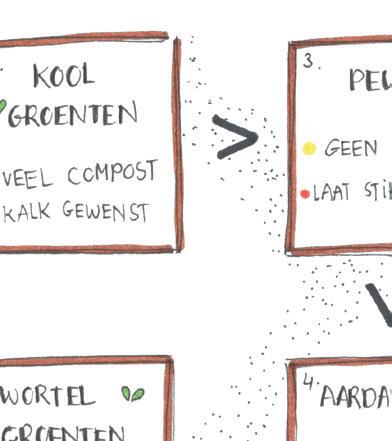 KOOL
GROENTEN
VEEL COMPOST
KALK GEWENST
3.
GEEN
LAAT
WORTEL
GROENTEN
4.